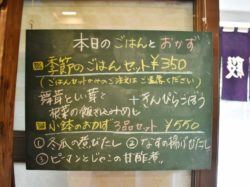 本日のごはんとおかず
季節のごはんセット ¥350
(ごはんセットのみのご注文はご遠慮ください)
舞茸としい茸と
根菜の炊き込みめし
+ きんぴらごぼう
小鉢のおかず 3品セット ¥550
①冬瓜の煮びたし ②なすの揚げびたし
③ピーマンとじゃこの甘酢煮。